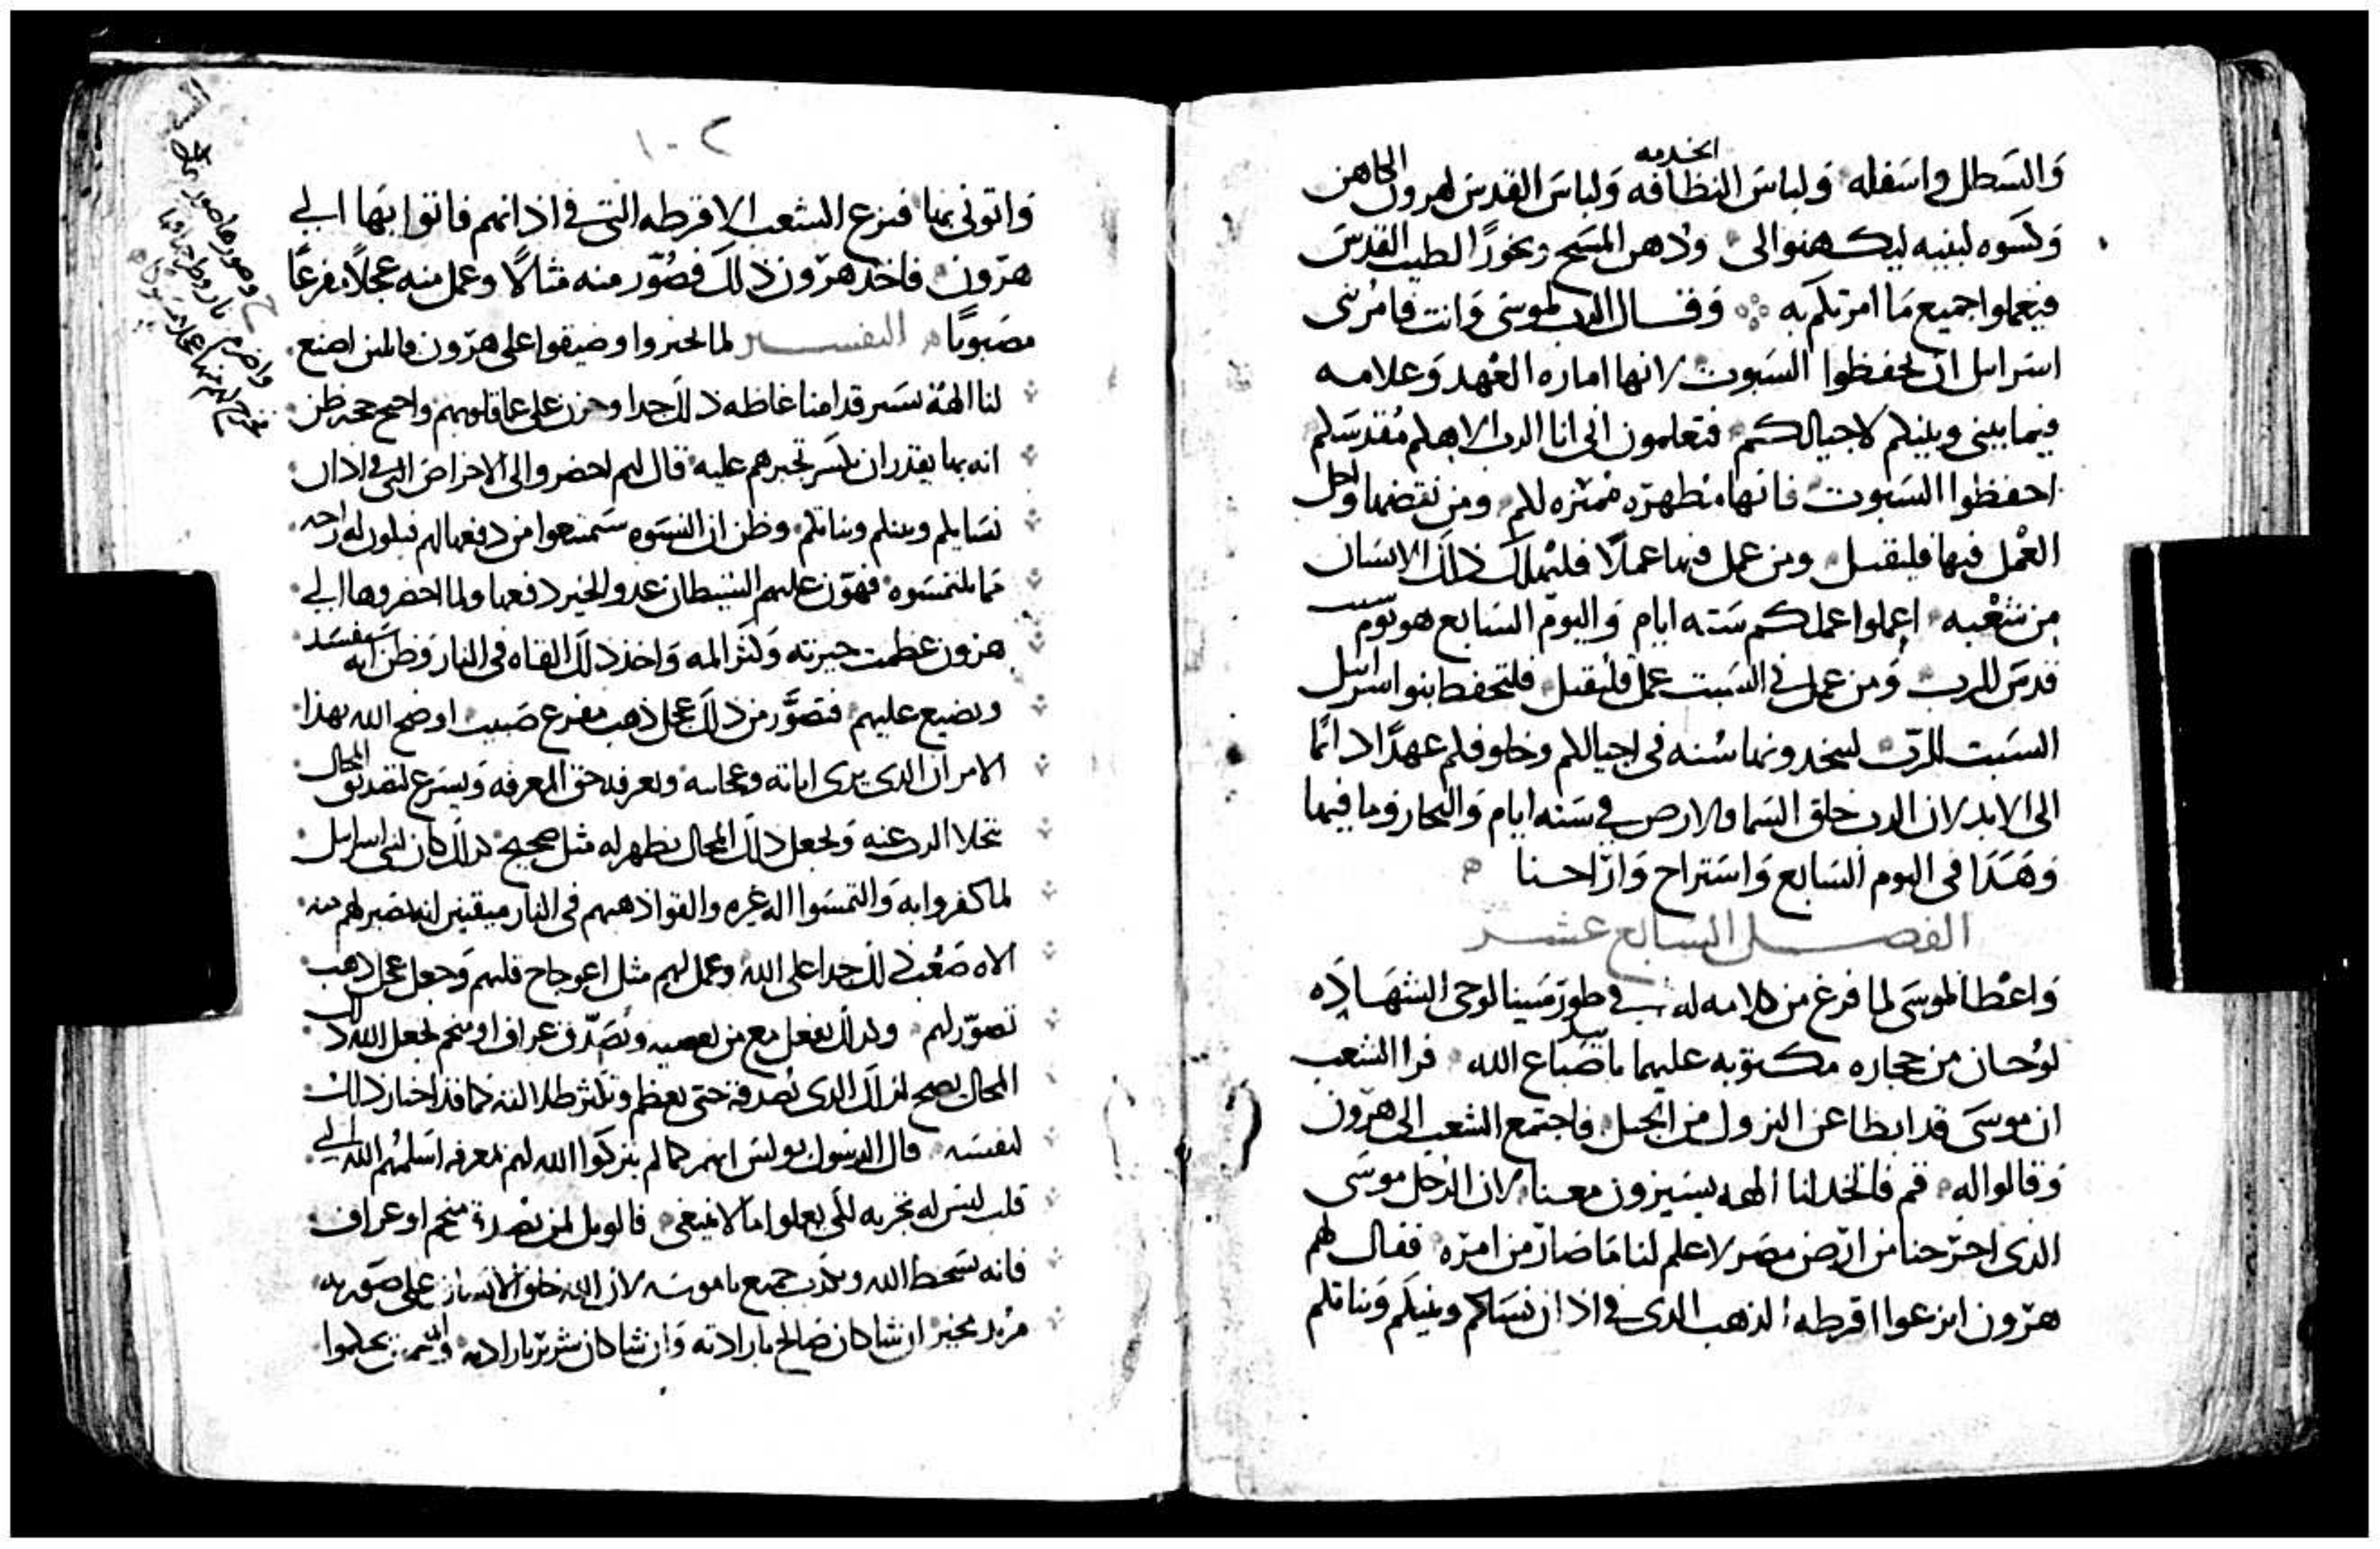 الخدمه
والسطل واسفله ولباس النظافه ولباس القدس لهرون الكاهن
وكسوه لبنيه ليكهنوا لى ودهن المسح وبخورا لطيب القدس
فيعملوا جميع ما امرتكم به وقال الرب لموسى وانت فامر بنى
اسرايل ان يحفظوا السبوت لانها اماره العهد وعلامه
فيما بينى وبينكم لاجيالكم فتعلمون انى انا الرب الاهكم مقدسكم
احفظوا السبوت فانها مطهره مميزه لكم ومن نقضها واحل
العمل فيها فليقتل ومن عمل فيها عملا فليهلك ذلك الانسان
من شعبه اعملوا عملكم سته ايام واليوم السابع هو يوم سبت
قدس للرب ومن عمل فى السبت عمل فليقتل فليحفظ بنوا اسرايل
السبت للرب ليتخدونها سنه فى اجيالكم وخلوفكم عهدا دائما
الى الابد لان الرب خلق السما والارض فى سته ايام والبحار وما فيها
وهدا فى اليوم السابع واستراح وارّاحنا
الفصل السابع عشر
واعطا لموسى لما فرغ من كلامه له فى طور سينا لوحى الشهاده
لوحان من حجاره مكتوبه عليهما باصباع الله فرا الشعب
ان موسى قد ابطا عن النزول من الجبل فاجتمع الشعب الى هرون
وقالوا له قم فاتخد لنا الهه يسيرون معنا لان الرجل موسى
الذى اخرجنا من ارض مصر لا علم لنا ما صار من امره فقال لهم
هرون انزعوا اقرطه الذهب الدى فى اذان نساكم وبنيكم وبناتكم
١٠٢
واتونى بها فنزع الشعب الاقرطه التى فى اذانهم فاتوا بها الى
هرون فاخد هرون ذلك فصور منه مثالا وعمل منه عجلا مفرغا
مصبوبا التفسير لما تجبروا وضيقوا على هرون قالين اصنع
لنا الهة تسير قدامنا غاظه ذلك جدا وحزن على عما قلوبهم
انه بها يقدر ان يكسر تجبرهم عليه قال لهم احضروا الى الاخراص التى فى اذان
نسايكم وبنيكم وبناتكم وظن ان النسوه سيمنعوا من دفعها لهم
مما يلتمسوه فهون عليهم الشيطان عدو الخير دفعها ولما احضروها الى
هرون عظمت حيرته وكثر المه واخذ ذلك القاه فى النار وظن انه سيفسد
ويضيع عليهم فتصور من ذلك عجل ذهب مفرغ صبيب اوضح الله بهذا
الامر ان الدى يرى اياته وعجايبه ويعرفه حق المعرفه ويسرع لتصديق المحال
يتخلا الرب عنه ويجعل ذلك المحال يظهر له مثل صحيح كدلك كان لبنى اسرايل
لما كفروا به والتمسوا اله غيره والقوا ذهبهم فى النار ميقنين انه يصير لهم منه
الاه صعب ذلك جدا على الله وعمل لهم مثل اعوجاج قلبهم وجعل عجل ذهب
تصور لهم وكدلك يفعل مع من يعصيه ويصدق عراف او منجم يجعل الله ذلك
المحال يصح لذلك الذى يصدقه حتى يعظم
لنفسه قال الرسول بولس انهم كما لم يتركوا الله لهم بمعرفه اسلمهم الله الى
قلب ليس له تجربه لكى يعملوا ما لا ينبغى فالويل لمن يصدق منجم او عراف
فانه يسخط الله ويكذب جميع ناموسه لان الله خلق الانسان على صورته
مريد مخير ان شا كان صالح بارادته وان شا كان شرير بارادته